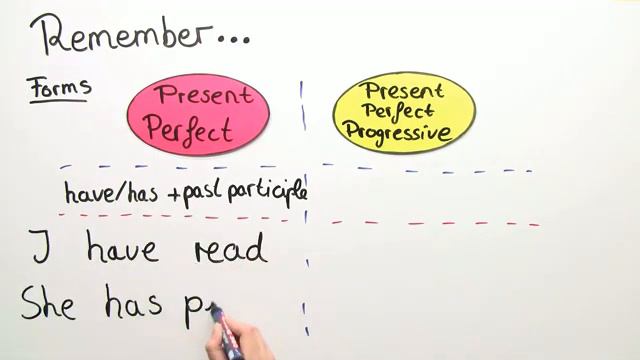 Remember...
Forms
Present
Perfect
Present
Perfect
Progressive
have/has + past participle
I have read
She has